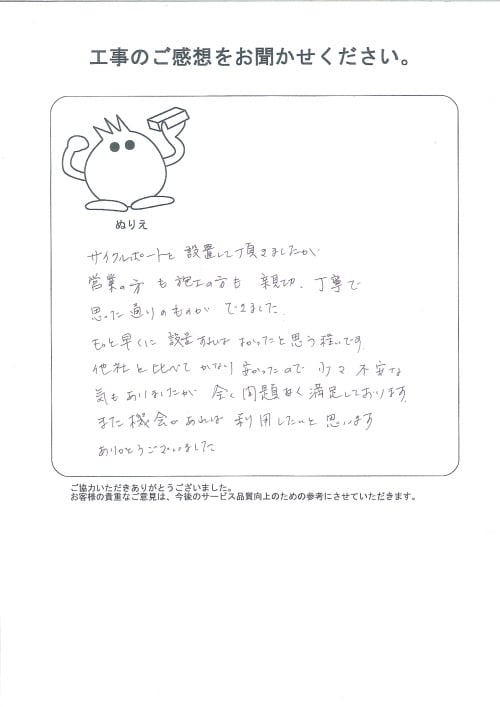 工事のご感想をお聞かせください。
ぬりえ
サイクルポートを設置して頂きましたが
営業の方も施工の方も 親切、丁寧で
思った通りのものが できました。
もっと早くに 設置すれば よかったと思う程です
他社と比べて かなり安かったので 少々 不安な
気もありましたが 全く問題なく満足しております。
また機会があれば 利用したいと思います
ありがとうございました
ご協力いただきありがとうございました。
お客様の貴重なご意見は、今後のサービス品質向上のための参考にさせていただきます。